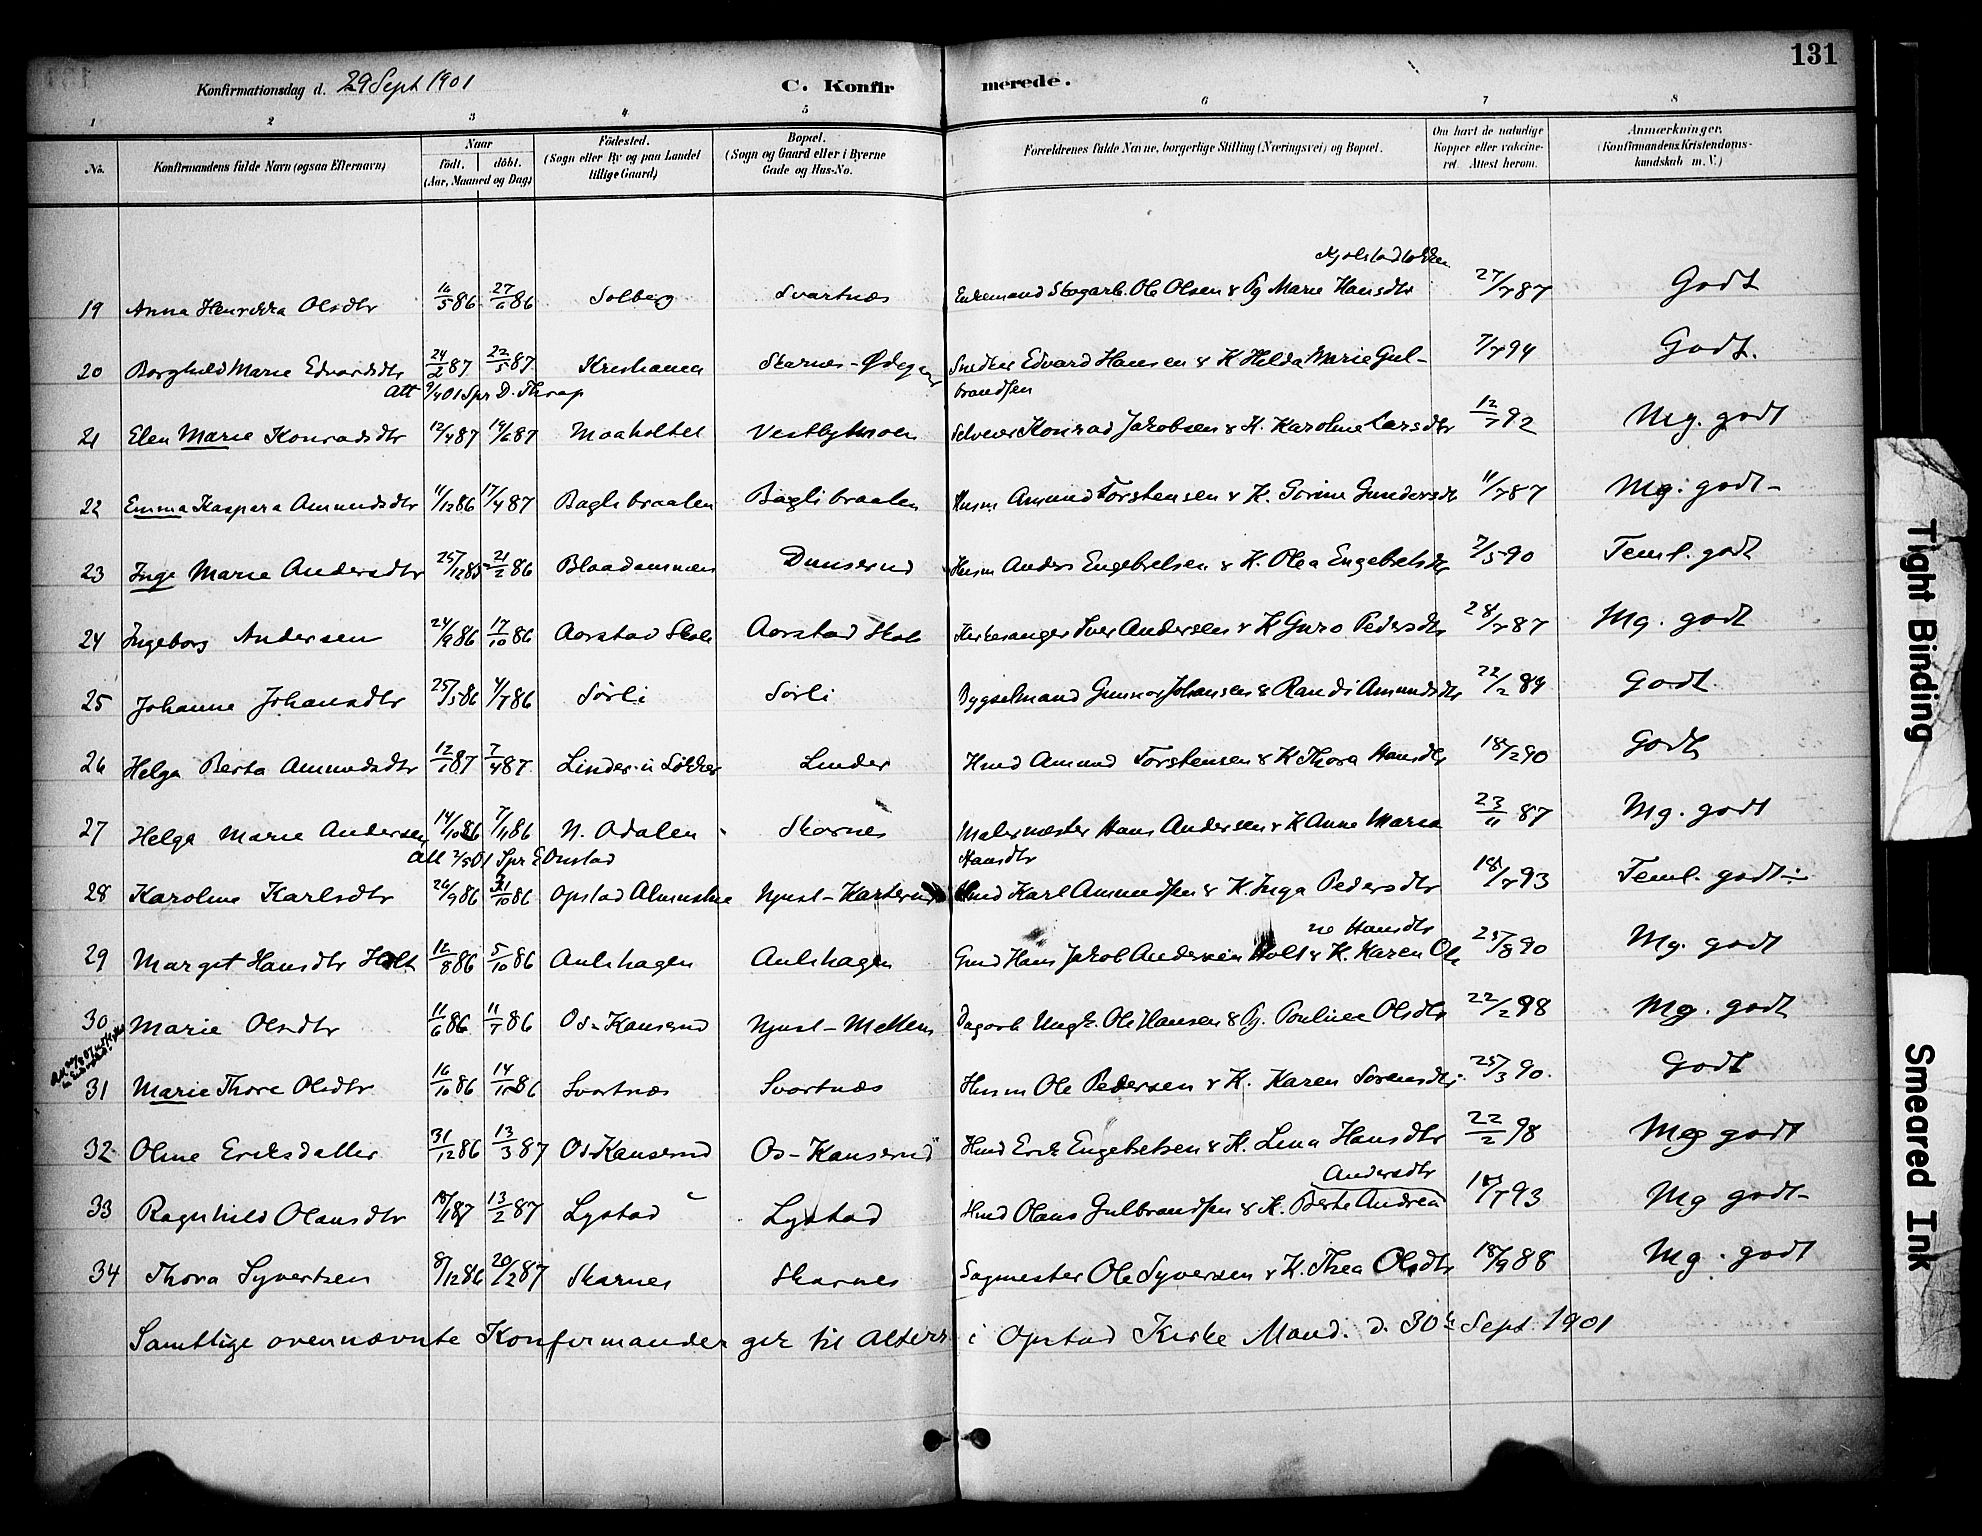 131
Konfirmationsdag d. 29 Sept 1901 C. Konfirmerede.
1 2 3 4 5 6 7 8
No. Konfirmandens fulde Navn (ogsaa Efternavn) Naar födt. döbt. (Aar, Maaned og Dag) Födested. (Sogn eller By og paa Landet tillige Gaard) Bopæl. (Sogn og Gaard eller i Byerne Gade og Hus-No. Forældrenes fulde Navne, borgerlige Stilling (Næringsvei) og Bopæl. Om havt de naturlige Kopper eller vaccineret. Attest herom. Anmærkninger. (Konfirmandens Kristendomskundskab m. V.)
19 Anna Olsdtr 16/5 86 27/6 86 Solberg Svartnæs Enkemand Skogarb. Ole Olsen & Pg Marie Hansdtr 27/7 87 Godt
20 Borghild Marie Edvardsdtr 24/2 87 22/5 87 Kristiania Skarnes- Snedker Edvard Hansen & K Hilda Marie Gul- 7/7 94 Godt.
Att 9/4 01 Spr D. Thrap brandsen
21 Elen Marie Konradsdtr 12/4 87 19/6 87 Maaholtet Selveier Konrad Jakobsen & K. Karoline Larsdtr 12/7 92 Mg. godt
22 Emma Kaspera Amundsdtr 11/12 86 17/4 87 Baglibraaten Baglibraaten Husm Amund Torstensen & K. Gundersdt 11/7 87 Mg. godt
23 Inga Marie Andersdtr 25/12 85 21/2 86 Blaadammen Dunserud Husm Anders Engebretsen & K. Olea Engebretsdtr 7/5 90 Teml. godt
24 Ingeborg Andersen 24/9 86 17/10 86 Aorstad Skole Aorstad Skole Kirkesanger Iver Andersen & K Guro Pedersdtr 28/7 87 Mg. godt
25 Johanne Johansdtr 25/5 86 4/7 86 Sörli Sörli Bygselmand Gunnar Johansen & Randi Amundsdtr 22/2 89 Godt
26 Helga Berta Amundsdtr 12/1 87 7/4 87 Linder Linder Hmd Amund Torstensen & K Thora Hansdtr 18/2 90 Godt
27 Helga Marie Andersen 14/10 86 7/11 86 N. Odalen Skarnes Malermester Hans Andersen & K Anne Marie 23/11 87 Mg. godt
Att 2/5 01 Spr Hansdtr
28 Karoline Karlsdtr 26/9 86 31/10 86 Opstad Hmd Karl Amundsen & K. Inga Pedersdtr 18/7 93 Teml. godt
ne Hansdtr
29 Margit Hansdtr Holt 12/8 86 5/10 86 Aulihagen Aulihagen Gmd Hans Jakob Andersen Holt & K. Karen Ole 25/8 90 Mg. godt
30 Marie Olsdtr 11/6 86 11/7 86 Os-Kanserud Dagarb Ungk. Ole Hansen & Pg. Pouline Olsdtr 22/2 88 Mg. godt
31 Marie Thore Olsdtr 16/10 86 14/11 86 Svartnæs Svartnæs Husm Ole Pedersen & K. Karen Sorensdtr 25/3 90. Godt
32 Oline Eriksdatter 31/12 86 13/3 87 Os-Kanserud Os-Kanserud Hmd Erik Engebretsen & K. Lina Hansdtr 22/2 98 Mg godt
Andersdtr
33 Ragnhild Olausdtr 18/1 87 13/2 87 Lystad Lystad Hmd Olaus Gulbrandsen & K. Berte Andrea 18/7 93 Mg godt
34 Thora Syvertsen 8/12 86 20/2 87 Skarnes Skarnes Sagmester Ole Syversen & K. Thea Olsdtr 18/9 88 Mg. godt
Samtlige ovennævnte Konfirmander gik til Alters i Opstad Kirke Mand. d. 30te Sept 1901
Tight Binding
Smeared Ink